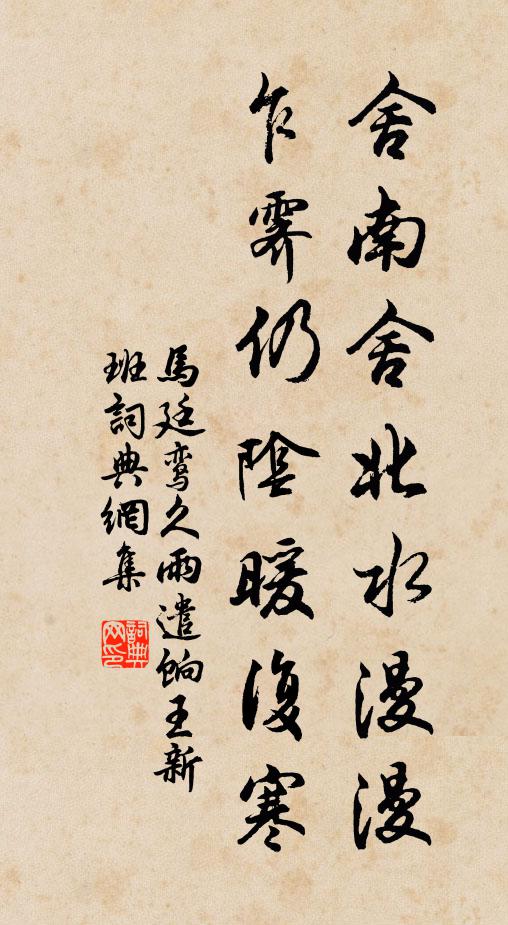 舍南舍北水漫漫
乍霽仍陰暖復寒
馬廷鸞久雨遣餉王新
班詞典網集
詞典网印